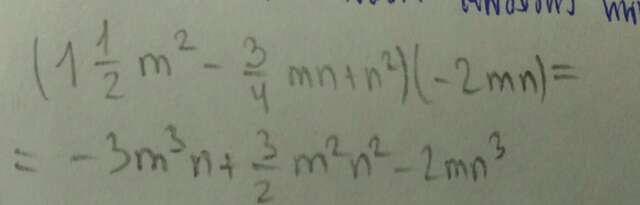 (1 1/2 m² - 3/4 mn + n²)(-2mn) =
= -3m³n + 3/2 m²n² - 2mn³